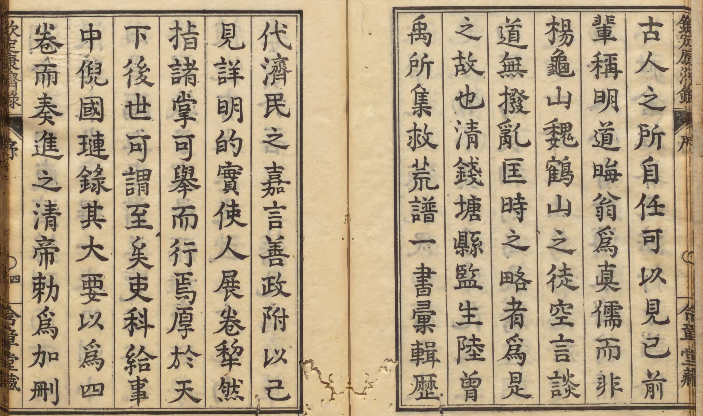 古人之所自任可以見已前
輩稱明道晦翁爲真儒而非
楊龜山魏鶴山之徒空言談
道無撥亂匡時之略者爲是
之故也清錢塘縣監生陸曾
禹所集救荒譜一書彙輯歷
代濟民之嘉言善政附以己
見詳明的實使人展卷犂然
指諸掌可舉而行焉厚於天
下後世可謂至矣吏科給事
中倪國璉錄其大要以爲四
卷而奏進之清帝勅爲加刪
欽定康濟錄
序
四